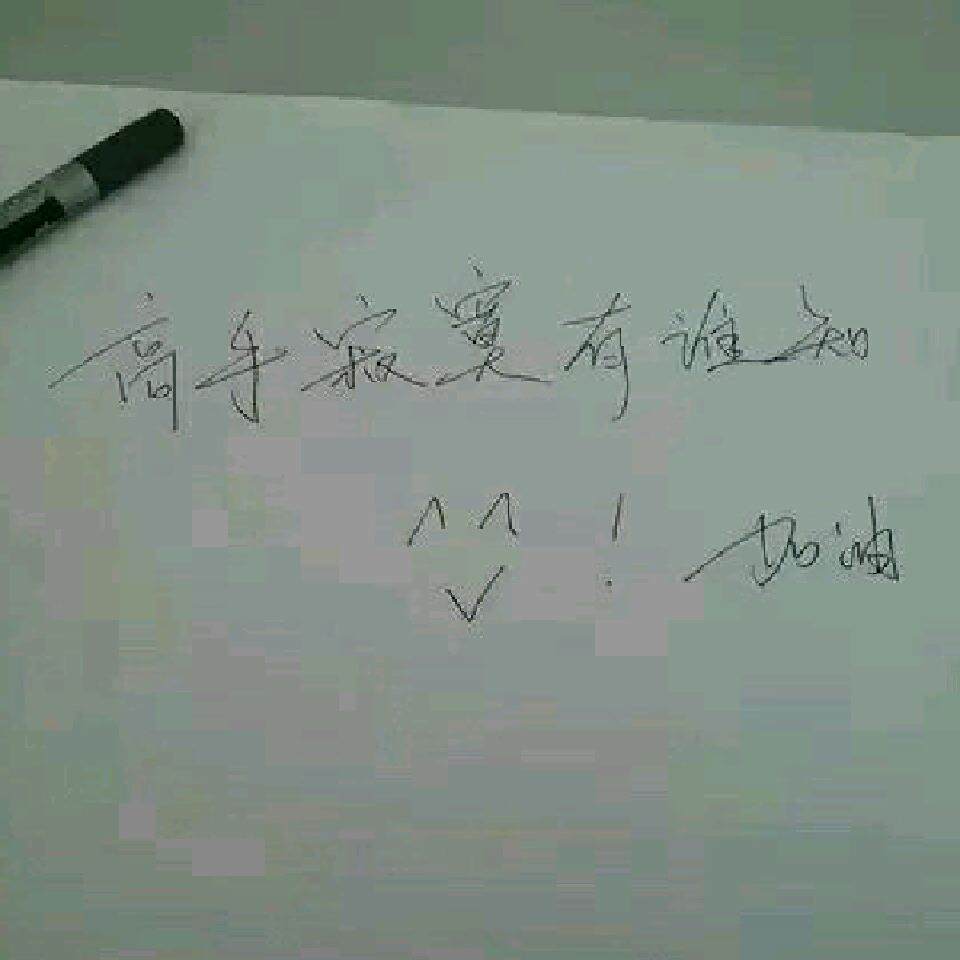 高手寂寞有谁知
^ ^ ! 加油
v